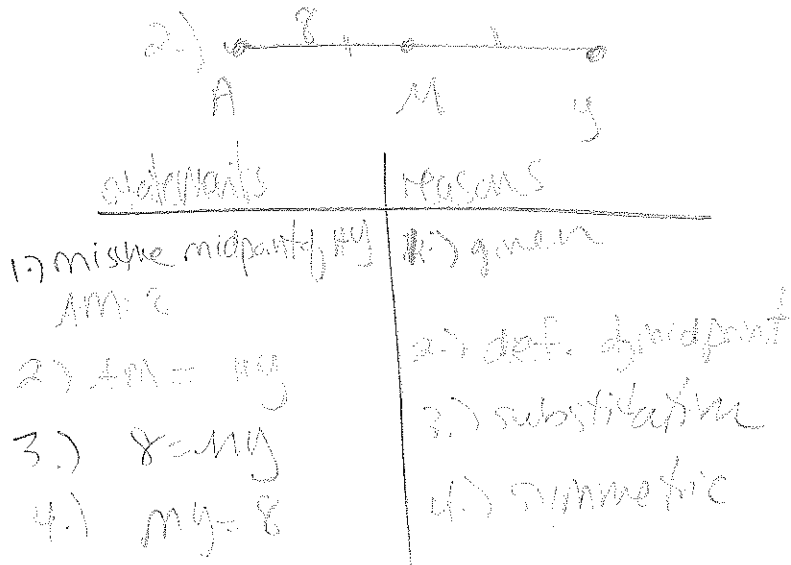 2.) 8
A M y
statements reasons
1.) M is the midpoint of AY 1.) given
AM = 8
2.) AM = MY 2.) def. of midpoint
3.) 8 = MY 3.) substitution
4.) MY = 8 4.) symmetric